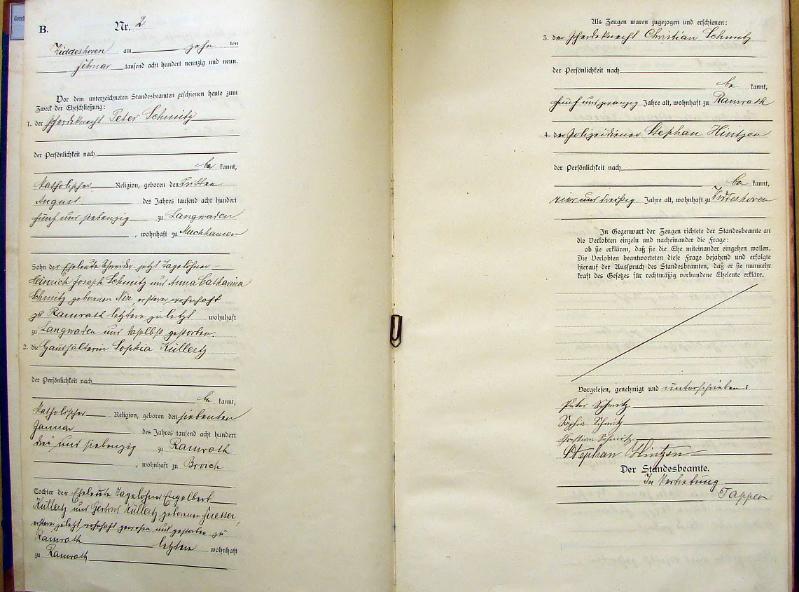 B.
Nr. 2
Hiddeshoven am zehn ten
Februar tausend acht hundert neunzig und neun.
Vor dem unterzeichneten Standesbeamten erschienen heute zum
Zweck der Eheschließung:
1. der Pferdeknecht Peter Schmitz
der Persönlichkeit nach
be kannt,
katholischer Religion, geboren den dritten
August des Jahres tausend acht hundert
fünf und siebenzig zu Langwaden
, wohnhaft zu Muchhausen
Sohn der Eheleute Schneider jetzt Tagelöhner
Heinrich Joseph Schmitz und Anna Catharina
Schmitz geborenen erstere wohnhaft
zu Ramrath letztere zuletzt wohnhaft
zu Langwaden und daselbst gestorben.
2. die Haushälterin Sophia Küllertz
der Persönlichkeit nach
be kannt,
katholischer Religion, geboren den siebenten
Januar des Jahres tausend acht hundert
drei und siebenzig zu Ramrath
, wohnhaft zu Broich
Tochter der Eheleute Tagelöhner Engelbert
Küllertz und Gertrud Küllertz geborenen
erstere zuletzt wohnhaft gewesen und gestorben zu
Ramrath letztere wohnhaft
zu Ramrath
Als Zeugen waren zugezogen und erschienen:
3. der Pferdeknecht Christian Schmitz
der Persönlichkeit nach
be kannt,
fünf und zwanzig Jahre alt, wohnhaft zu Ramrath
4. der Polizeidiener Stephan Hintzen
der Persönlichkeit nach
be kannt,
vier und dreißig Jahre alt, wohnhaft zu Hiddeshoven
In Gegenwart der Zeugen richtete der Standesbeamte an
die Verlobten einzeln und nacheinander die Frage:
ob sie erklären, daß sie die Ehe miteinander eingehen wollen.
Die Verlobten beantworteten diese Frage bejahend und erfolgte
hierauf der Ausspruch des Standesbeamten, daß er sie nunmehr
kraft des Gesetzes für rechtmäßig verbundene Eheleute erkläre.
Vorgelesen, genehmigt und unterschrieben:
Peter Schmitz
Sophia Schmitz
Christian Schmitz
Stephan Hintzen
Der Standesbeamte.
In Vertretung
Tappen